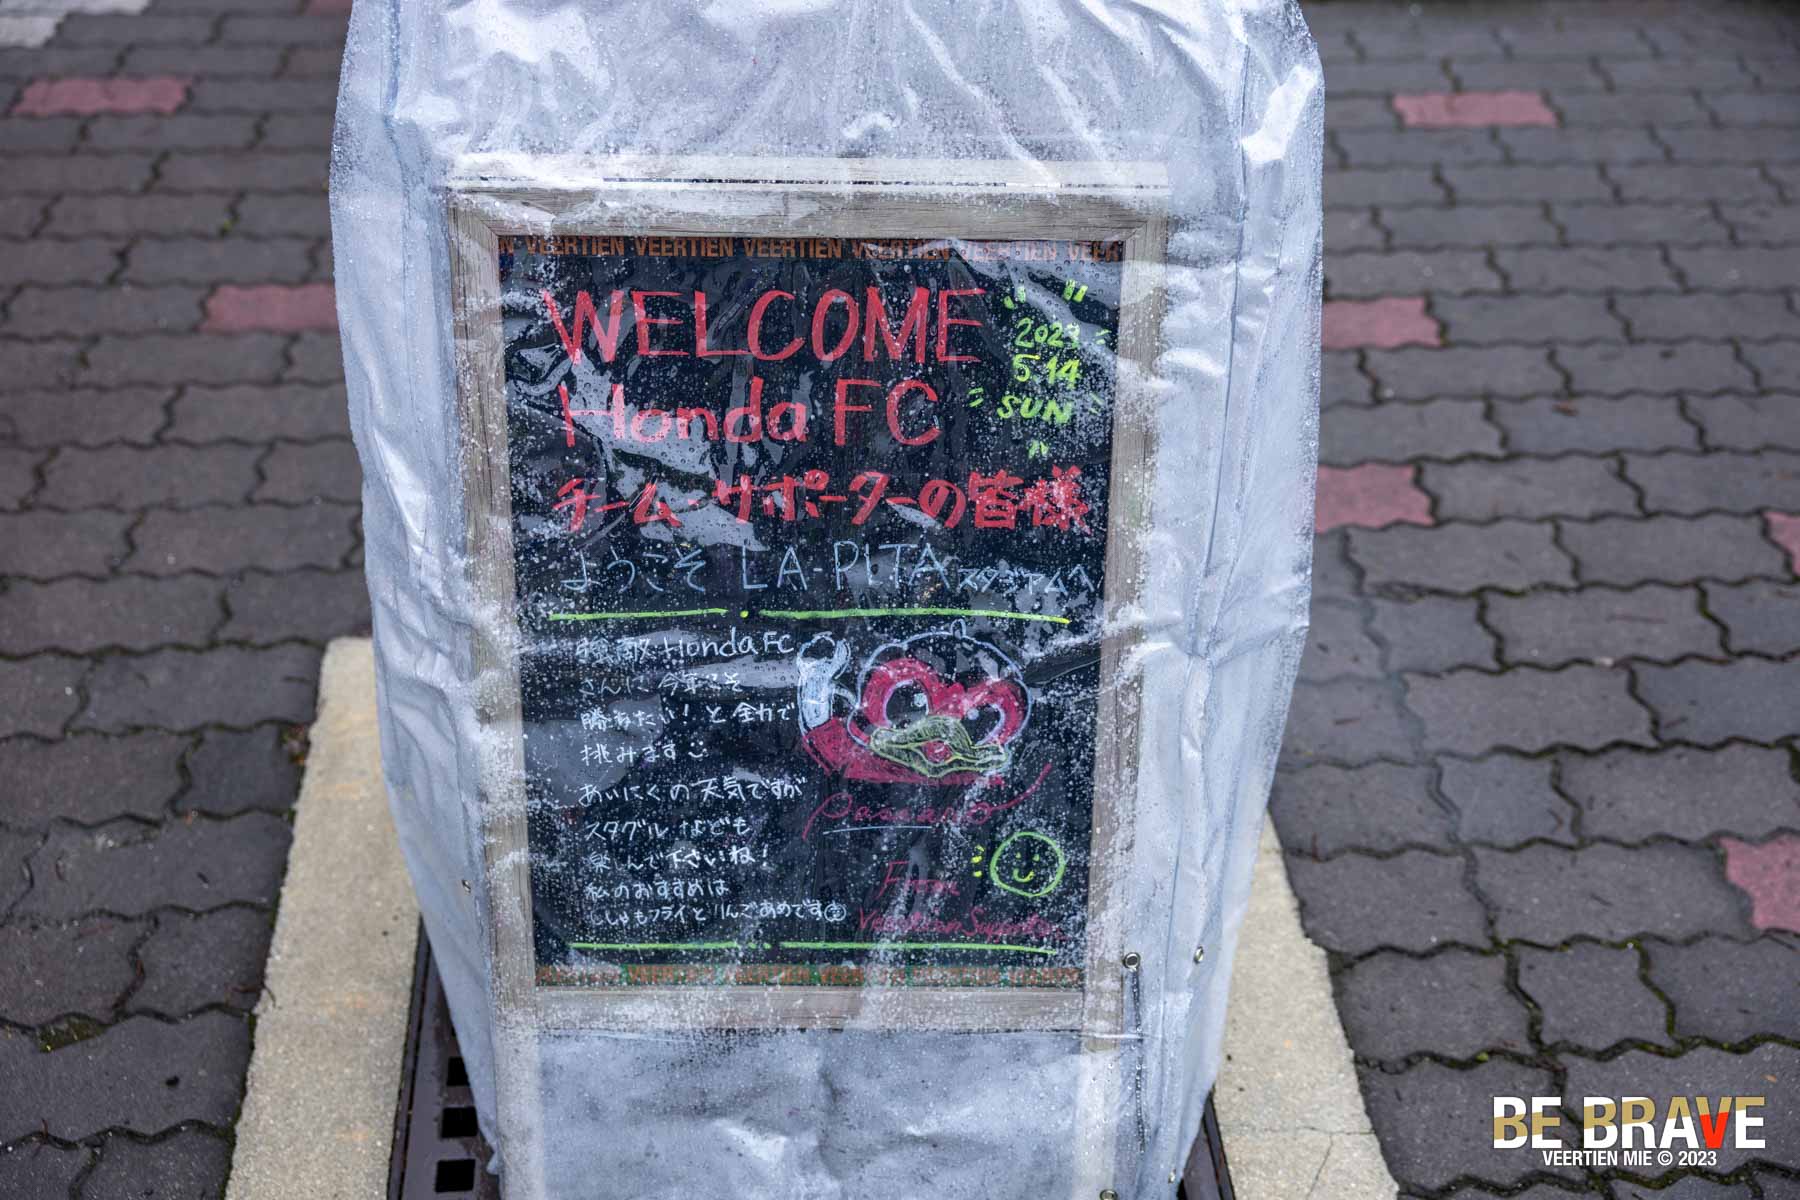 VEERTIEN VEERTIEN VEERTIEN VEERTIEN VEERTIEN
WELCOME
2023
5.14
SUN
Honda FC
チーム・サポーターの皆様
ようこそ LA-PITA スタジアムへ
強敵 Honda FC
さんに 今年こそ
勝ちたい！と全力で
挑みます
あいにくの天気ですが
スタグル なども
楽しんで下さいね！
私のおすすめは
ししゃもフライとりんごあめです
From
Veertien Supporter
VEERTIEN VEERTIEN
BE BRAVE
VEERTIEN MIE © 2023